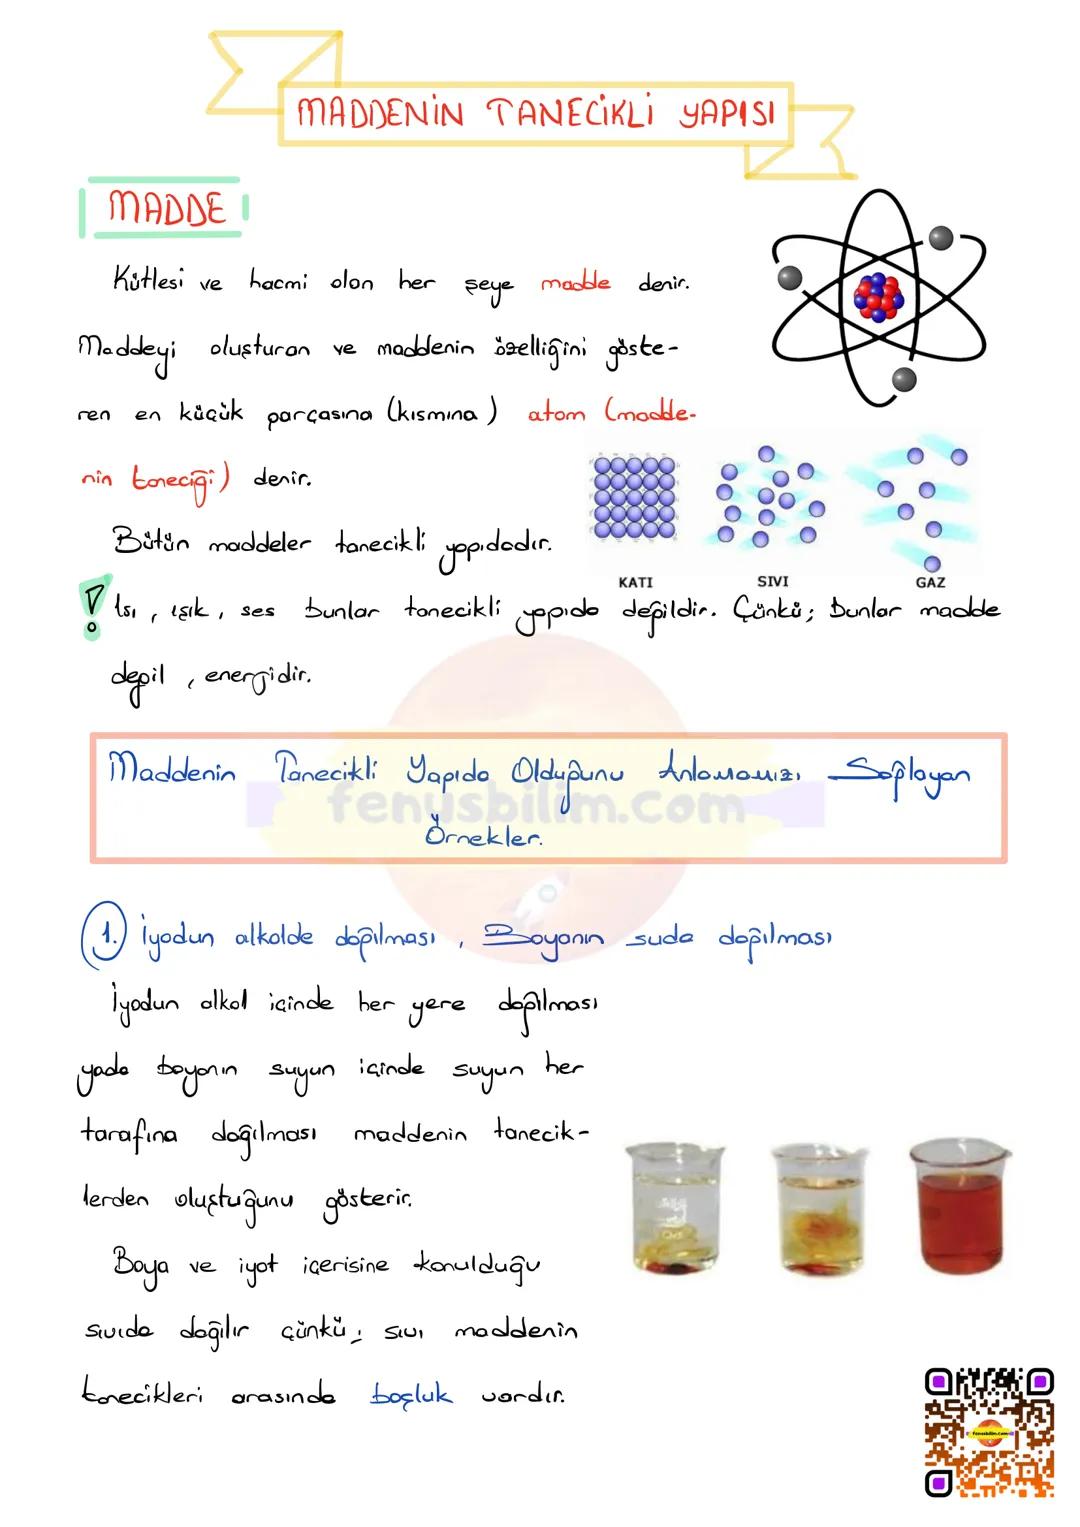 MADDENİN TANECİKLİ YAPISI
MADDE
Kütlesi ve hacmi olan her şeye madde denir.
Maddeyi oluşturan ve maddenin özelliğini göste-
ren en küçük parçasına (kısmına) atom (madde-
nin taneciği) denir.
Bütün maddeler tanecikli yapıdadır.
KATI SIVI GAZ
! Isı, ışık, ses bunlar tanecikli yapıda değildir. Çünkü; bunlar madde
değil, enerjidir.
Maddenin Tanecikli Yapıda Olduğunu Anlamamızı Sağlayan
Örnekler.
fenusbilim.com
1. İyodun alkolde dağılması, Boyanın suda dağılması
İyodun alkol içinde her yere dağılması
yada boyanın suyun içinde suyun her
tarafına dağılması maddenin tanecik-
lerden oluştuğunu gösterir.
Boya ve iyot içerisine konulduğu
sıvıda dağılır çünkü; sıvı maddenin
tanecikleri arasında boşluk vardır.
fenusbilim.com